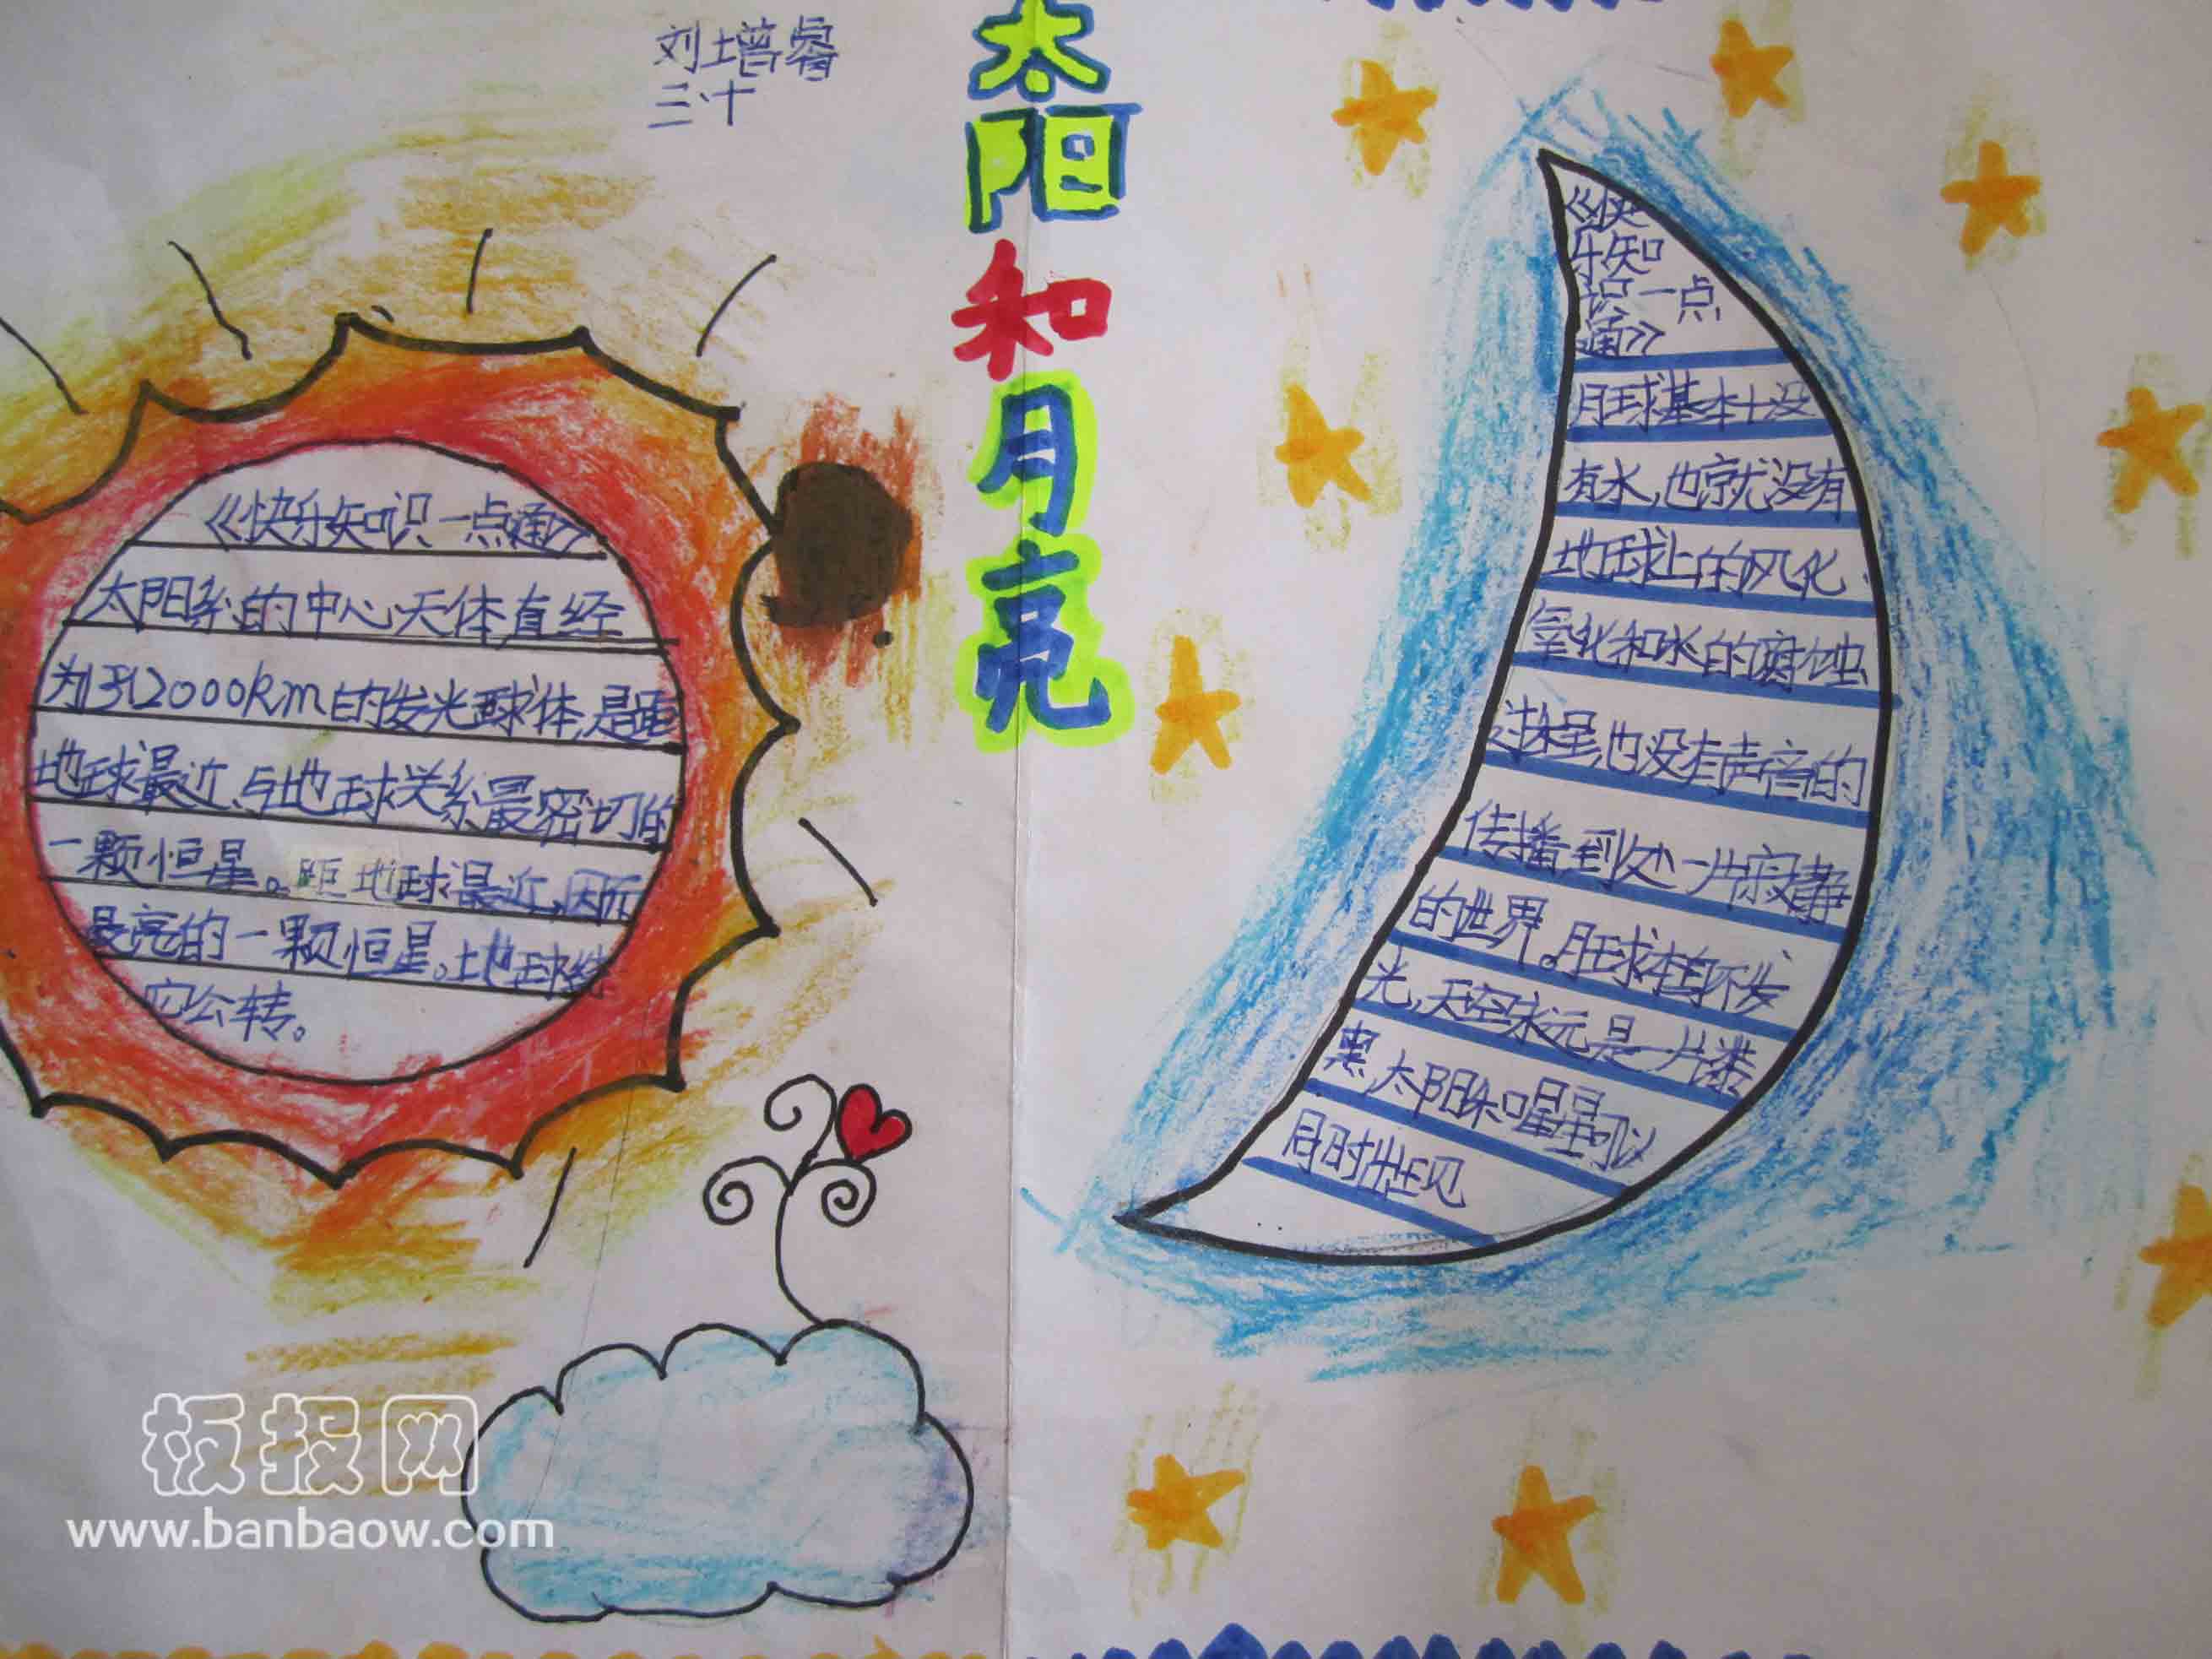 刘增睿
三、十
太阳和月亮
《快乐知识一点通》
太阳系的中心天体直经
2000km的发光球体,是距
地球最近、与地球关系最密切的
一颗恒星。距地球最近,因而
最亮的一颗恒星。地球绕
它公转。
《快
乐知
识一点
通》
月球基本上没
有水,也就没有
地球上的风化、
氧化和水的腐蚀
过程,也没有声音的
传播,到处一片寂静
的世界。月球本身不发
光,天空永远是一片漆
黑,太阳和星星可以
同时出现
板报网
www.banbaow.com